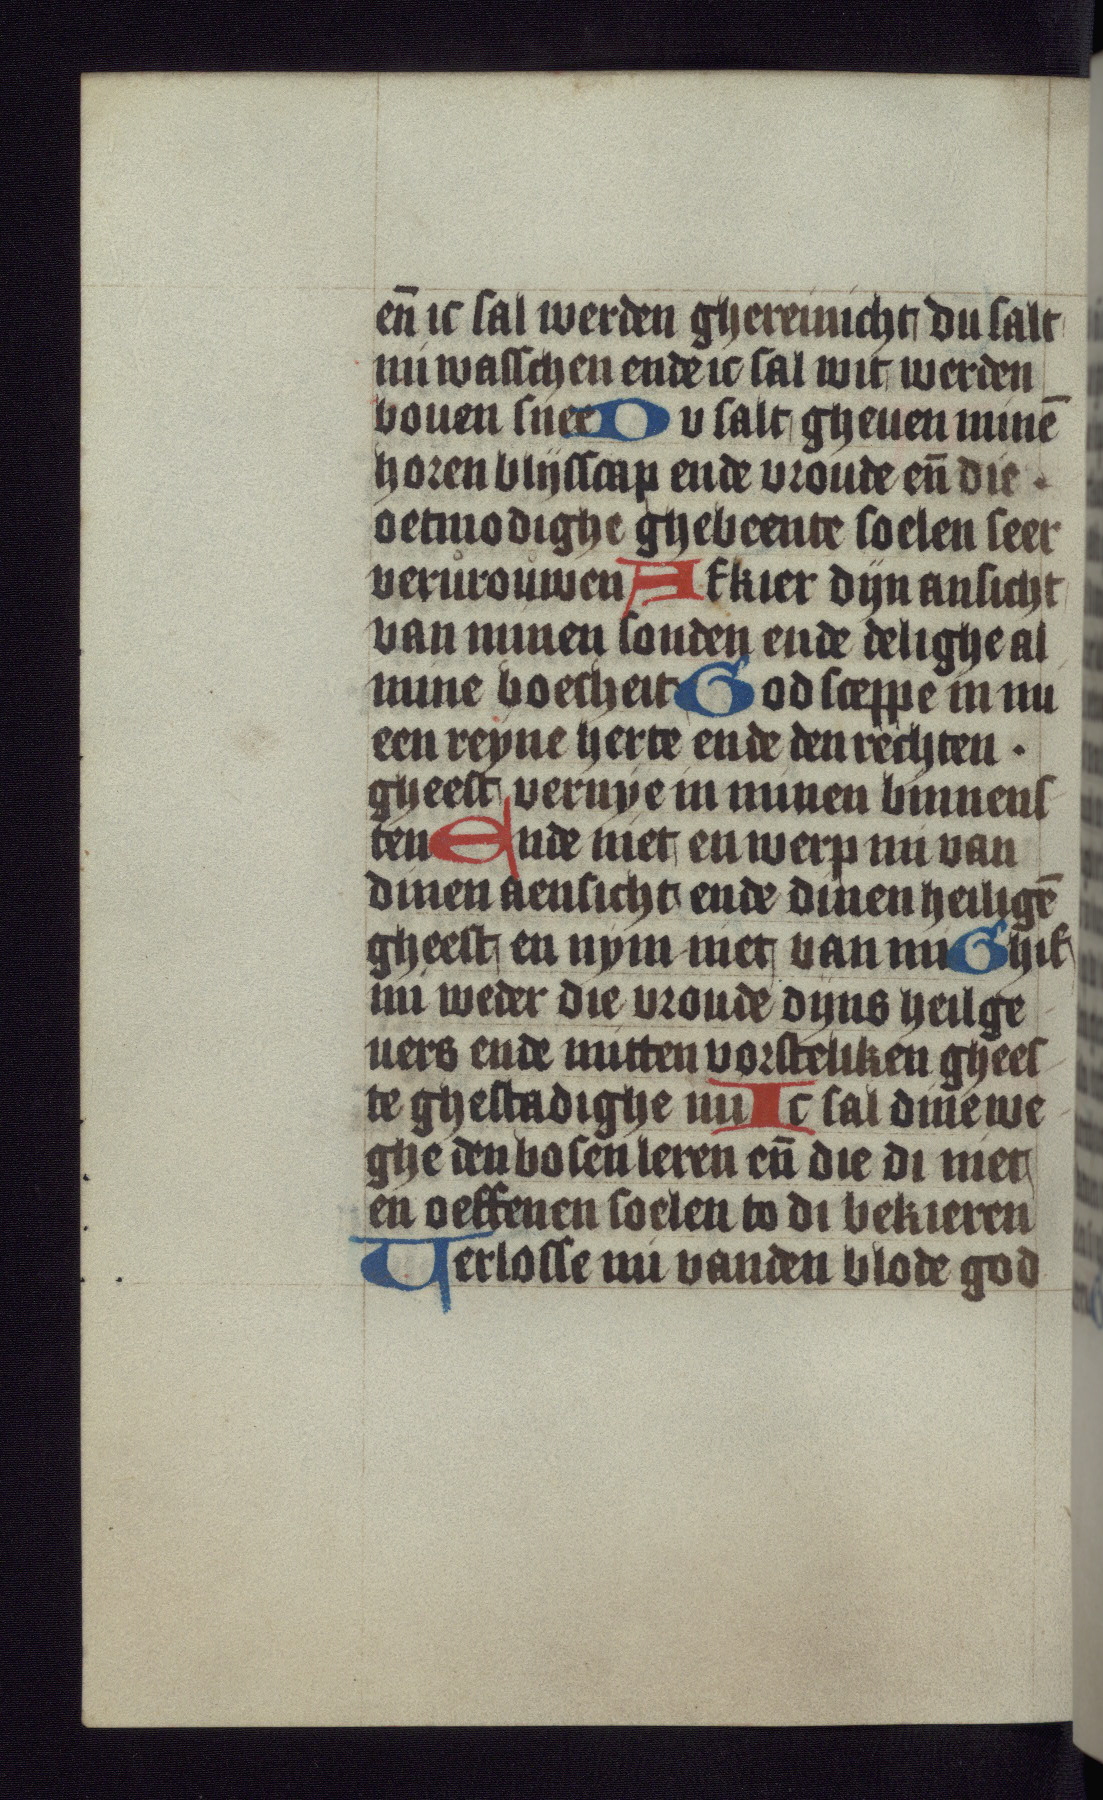 en̄ ic sal werden ghereinicht du salt
mi wasschen ende ic sal wit werden
bouen snee Du salt gheuen minē
horen blijsscap ende vroude en̄ die
oetmodighe ghebeente soelen seer
vervrouwen Afkier dijn ansicht
van minen sonden ende delighe al
mine boesheit God sceppe in mi
een reyne herte ende den rechten
gheest vernye in minen binnens
ten Ende niet en werp mi van
dinen aensicht ende dinen heiligē
gheest en nym niet van mi Ghif
mi weder die vroude dijns heilge
uers ende mitten vorsteliken ghees
te ghestadighe mi Ic sal dine we
ghe den bosen leren en̄ die di niet
en oeffenen soelen to di bekieren
Verlosse mi vanden blode god